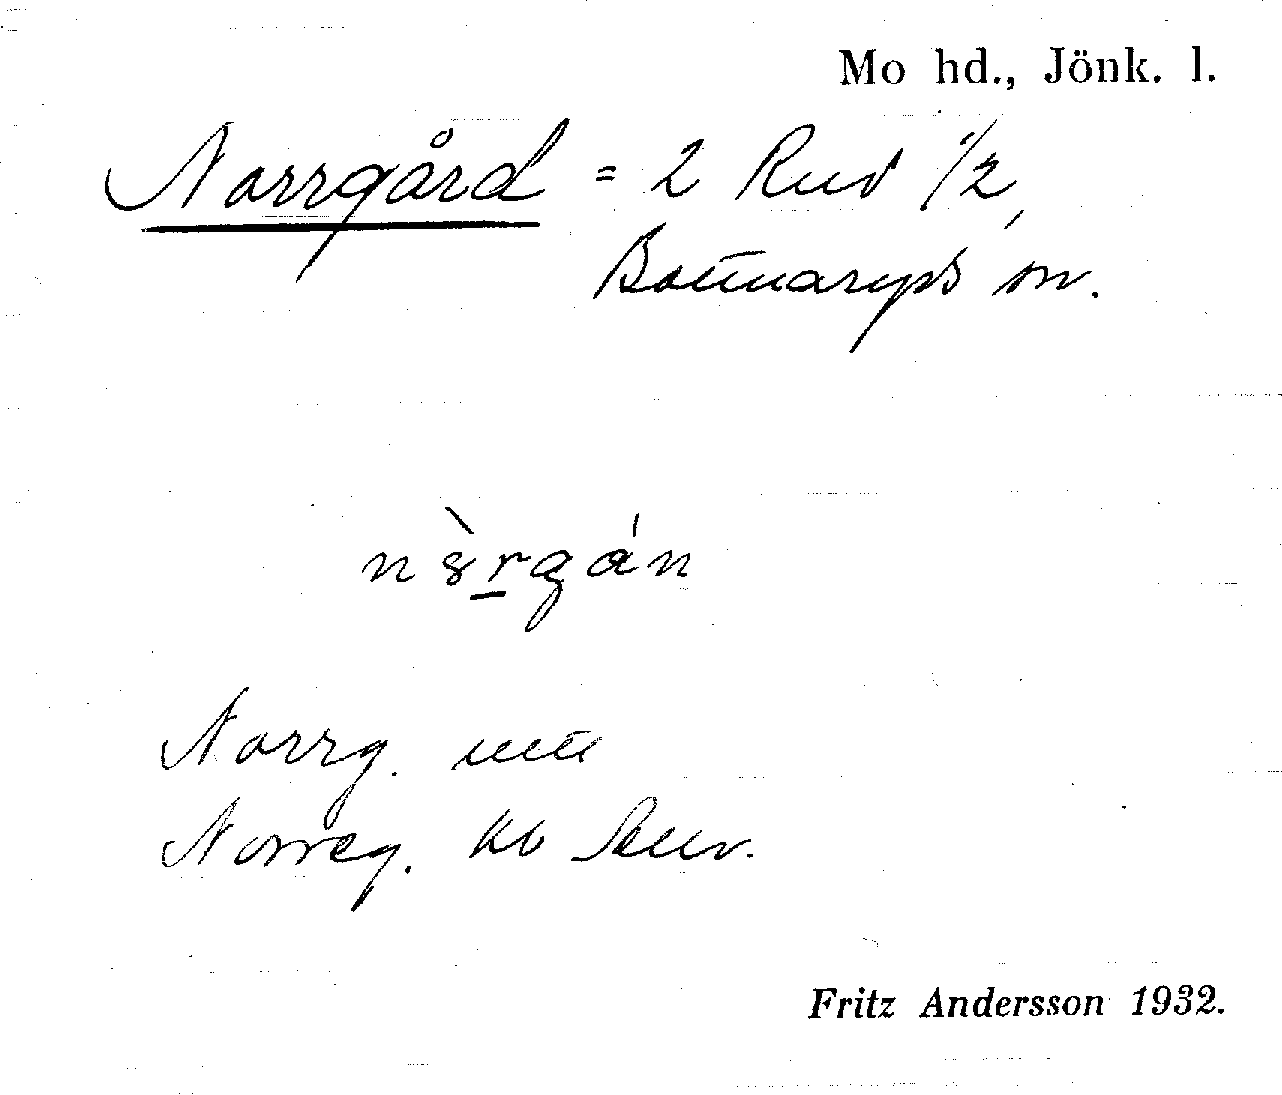 Mo hd., Jönk. l.
Norrgård = 2 Rud 1/2,
Bottnaryds sn.
Norrg. utt
Norreg. kb
Fritz Andersson 1932.